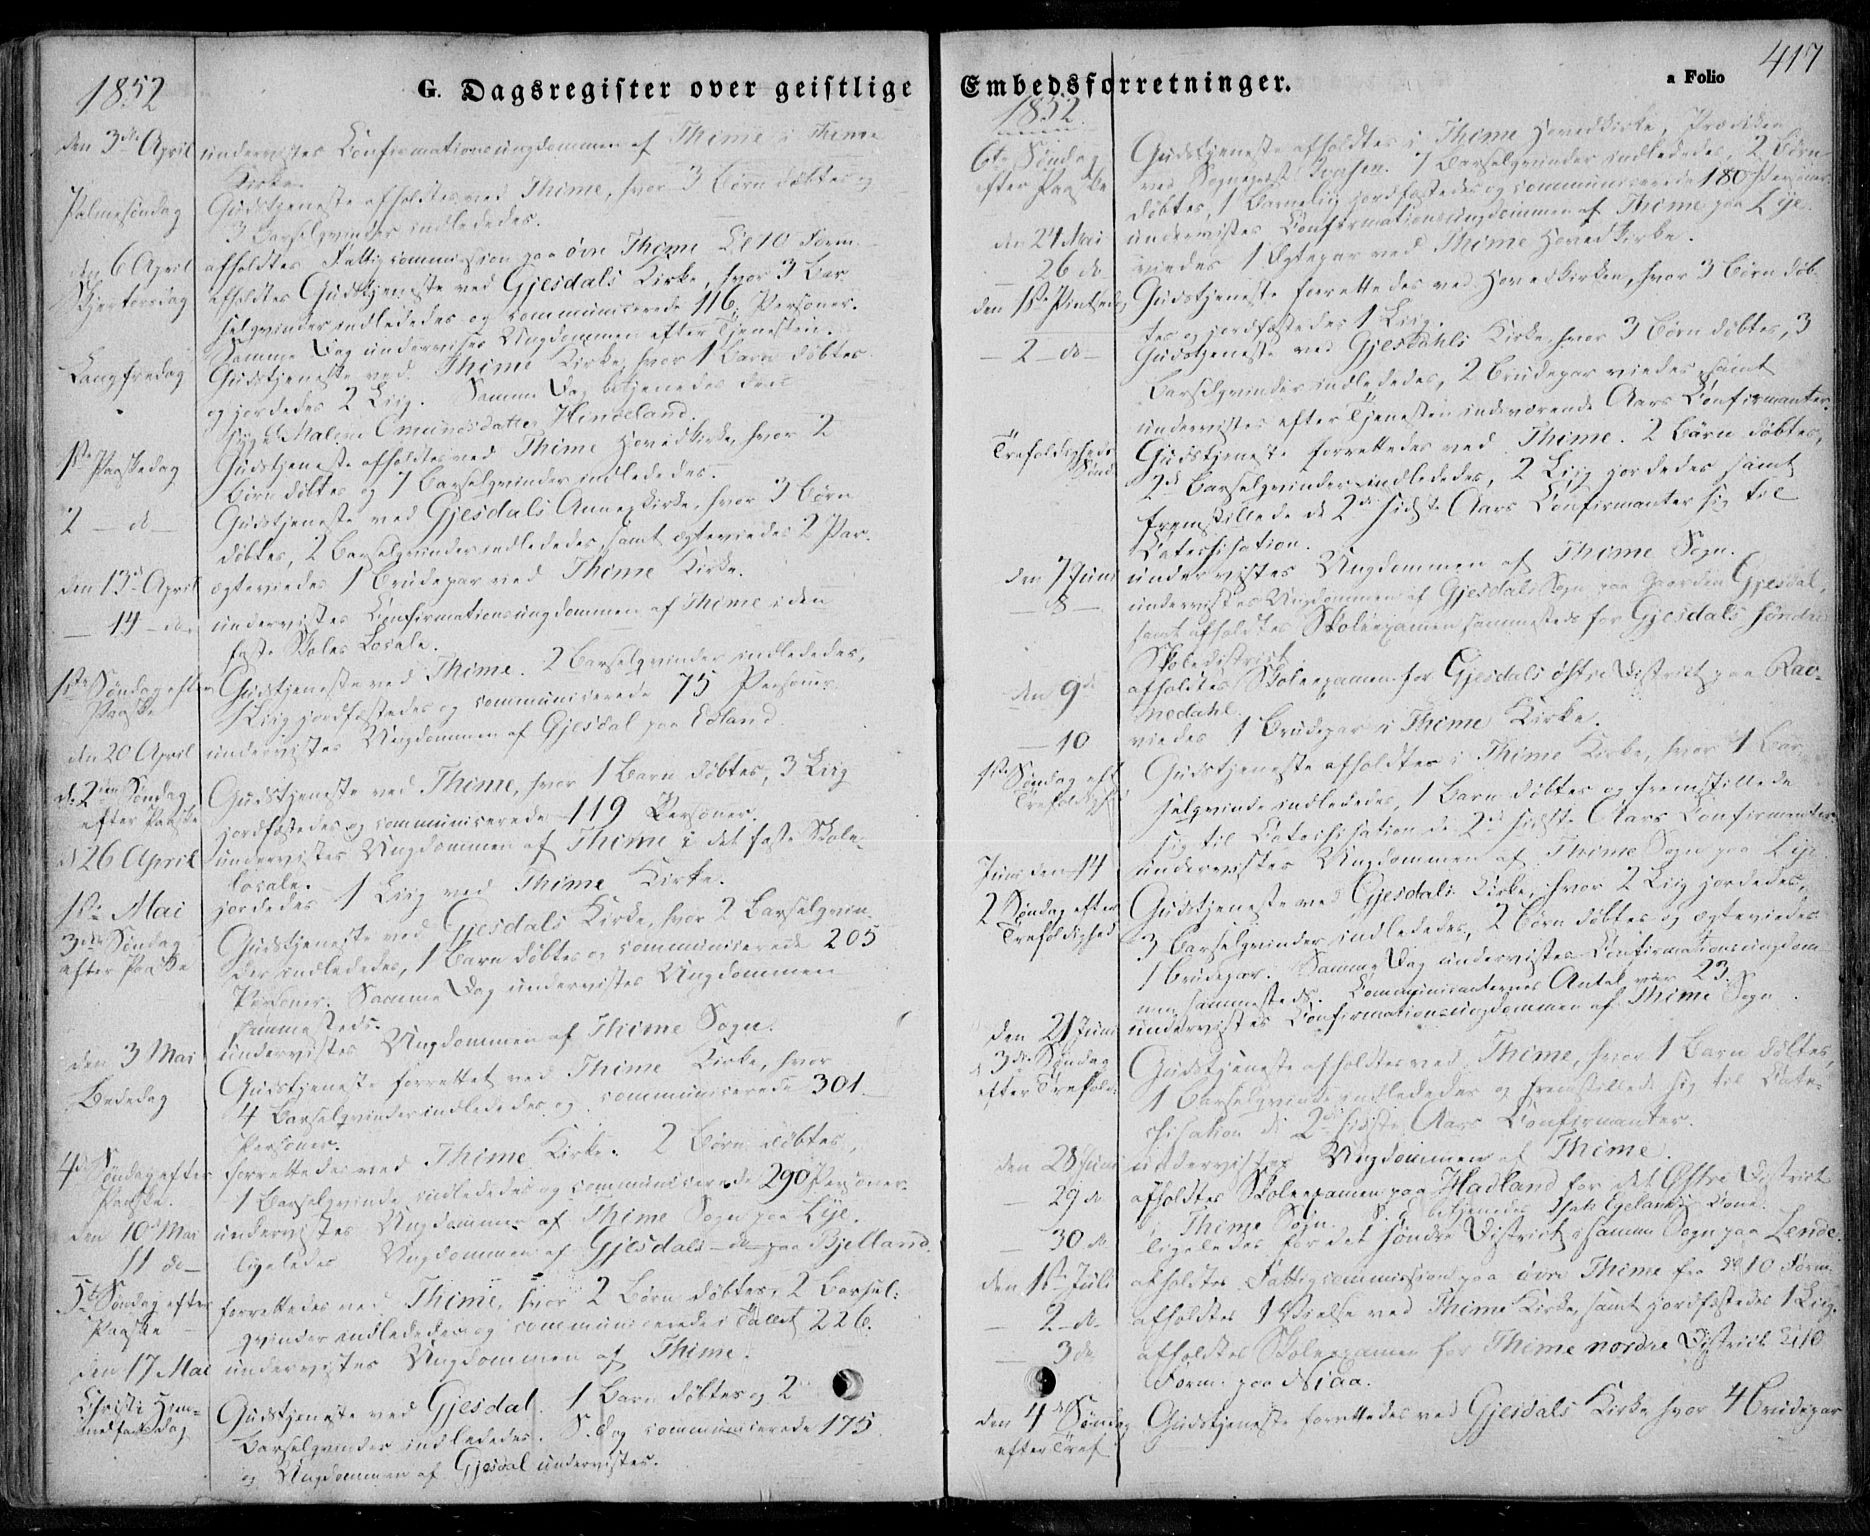 1852
G. Dagsregister over geistlige
den 3die April undervistes Confirmationsungdommen af Thime i Thime
Kirke.
Palmesöndag Gudstjeneste afholdtes ved Thime, hvor 3 Börn döbtes og
3 Barselqvinder indlededes.
den 6 April afholdtes Fattigcommission paa övre Thime Kl 10 Form.
Skjertorsdag afholdtes Gudstjeneste ved Gjesdals Kirke, hvor 3 Bar-
selqvinder indlededes og communicerede 116 Personer.
Samme Dag undervistes Ungdommen efter Tjenesten.
Langfredag Gudstjeneste ved Thime Kirke, hvor 1 Barn döbtes
og jordedes 2 Liig. Samme Dag betjenedes den
syge Malene Omundsdatter Hinneland.
1ste Paaskedag Gudstjeneste afholdtes ved Thime Hovedkirke, hvor 2
Börn döbtes og 7 Barselqvinder indlededes.
2 - do - Gudstjeneste ved Gjesdals Annexkirke, hvor 3 Börn
döbtes, 2 Barselqvinder indlededes, samt ægteviedes 2 Par.
den 13de April ægteviedes 1 Brudepar ved Thime Kirke.
- 14 - do - undervistes Confirmationsungdommen af Thime i den
faste Skoles Locale.
1ste Söndag efter Paaske Gudstjeneste ved Thime. 2 Barselqvinder indlededes,
1 Liig jordfæstedes og communicerede 75 Personer
den 20 April undervistes Ungdommen af Gjesdal paa Edland.
d. 2den Söndag efter Paaske Gudstjeneste ved Thime, hvor 1 Barn döbtes, 3 Liig
jordfæstedes og communicerede 119 Personer.
d 26 April undervistes Ungdommen af Thime i det faste Skole-
locale.
1ste Mai jordedes 1 Liig ved Thime Kirke.
3die Söndag efter Paaske Gudstjeneste ved Gjesdals Kirke, hvor 2 Barselqvin-
der indlededes, 1 Barn döbtes og communicerede 205
Personer. Samme Dag undervistes Ungdommen
sammesteds.
den 3 Mai undervistes Ungdommen af Thime Sogn.
Bededag Gudstjeneste forrettet ved Thime Kirke, hvor
4 Barselqvinder indlededes og communicerede 301
Personer.
4de Söndag efter Paaske. forrettedes ved Thime Kirke. 2 Börn döbtes,
1 Barselqvinde indlededes og communicerede 290 Personer.
den 10de Mai undervistes Ungdommen af Thime Sogn paa Lye.
- 11 do - ligeledes Ungdommen af Gjesdals - do - paa Bjelland.
5te Söndag efter Paaske forrettedes ved Thime, hvor 2 Börn döbtes, 2 Barsel-
qvinder indlededes og communicerede i Tallet 226.
den 17 Mai undervistes Ungdommen af Thime.
Christi Him-
melfartsdag Gudstjeneste ved Gjesdal. 1 Barn döbtes og 2
Barselqvinder indlededes. S. Dag communicerede 175
og Ungdommen af Gjesdal undervistes.
Embedsforretninger.
a Folio 417
1852.
6te Söndag efter Paaske Gudstjeneste afholdtes i Thime Hovedkirke, Prædiken
ved Sognepræst 7 Barselqvinder indlededes, 2 Börn
döbtes, 1 Barnelig jordfæstedes og communicerede 180 Personer
den 24 Mai undervistes Confirmationsungdommen af Thime paa Lye.
26 do viedes 1 Ægtepar ved Thime Hovedkirke.
den 1ste Pintsedag Gudstjeneste forrettedes ved Hovedkirken, hvor 3 Börn döb-
tes og jordfæstedes 1 Liig.
- 2 - do - Gudstjeneste ved Gjesdahls Kirke, hvor 3 Börn döbtes, 3
Barselqvinder indlededes, 2 Brudepar viedes, samt
undervistes efter Tjenesten indeværende Aars Confirmanter.
Trefoldigheds
Sönd. Gudstjeneste forrettedes ved Thime. 2 Börn döbtes,
2de Barselqvinder indlededes, 2 Liig jordedes samt
fremstillede de 2de sidste Aars Confirmanter sig til
Catechisation.
den 7 Juni undervistes Ungdommen af Thime Sogn.
- 8 - undervistes Ungdommen af Gjesdals Sogn paa Gaarden Gjesdal,
samt afholdtes Skoleexamen sammesteds for Gjesdals söndre
Skoledistrict.
den 9de afholdtes Skoleexamen for Gjesdals östre District paa Rav-
nedahl.
- 10 viedes 1 Brudepar i Thime Kirke.
1ste Söndag eft. Trefoldighed Gudstjeneste afholdtes i Thime Kirke, hvor 1 Bar-
selqvinde indlededes, 1 Barn döbtes og fremstillede
sig til Catechisation de 2de sidste Aars Confirmanter.
Juni den 14 undervistes Ungdommen af Thime Sogn paa Lye
2 Söndag efter Trefoldighed Gudstjeneste ved Gjesdals Kirke, hvor 2 Liig jordedes,
3 Barselqvinder indlededes, 2 Börn döbtes og ægteviedes
1 Brudepar. Samme Dag undervistes Confirmationsungdom-
men sammesteds. Communicanternes Antal var 23.
den 21 Juni undervistes Confirmationsungdommen af Thime Sogn
d 3die Söndag efter Trefold. Gudstjeneste afholdtes ved Thime, hvor 1 Barn döbtes,
1 Barselqvinde indlededes og fremstillede sig til Cate-
chisation de 2de sidste Aars Confirmanter.
den 28 Juni undervistes Ungdommen af Thime.
- 29 do afholdtes Skoleexamen paa Haaland for det Østre District
i Thime Sogn. S. D. betjenedes Egelands Kone.
- 30 do ligeledes for det söndre District i samme Sogn paa Lende.
den 1ste Juli afholdtes Fattigcommission paa övre Thime fra Kl 10 Form.
- 2 - do afholdtes 1 Vielse ved Thime Kirke, samt jordfæstedes 1 Liig.
- 3 do afholdtes Skoleexamen for Thime nordre District Kl 10
Form. paa Niaa.
den 4de Söndag efter Tref. Gudstjeneste forrettedes ved Gjesdals Kirke hvor 4 Brudepar